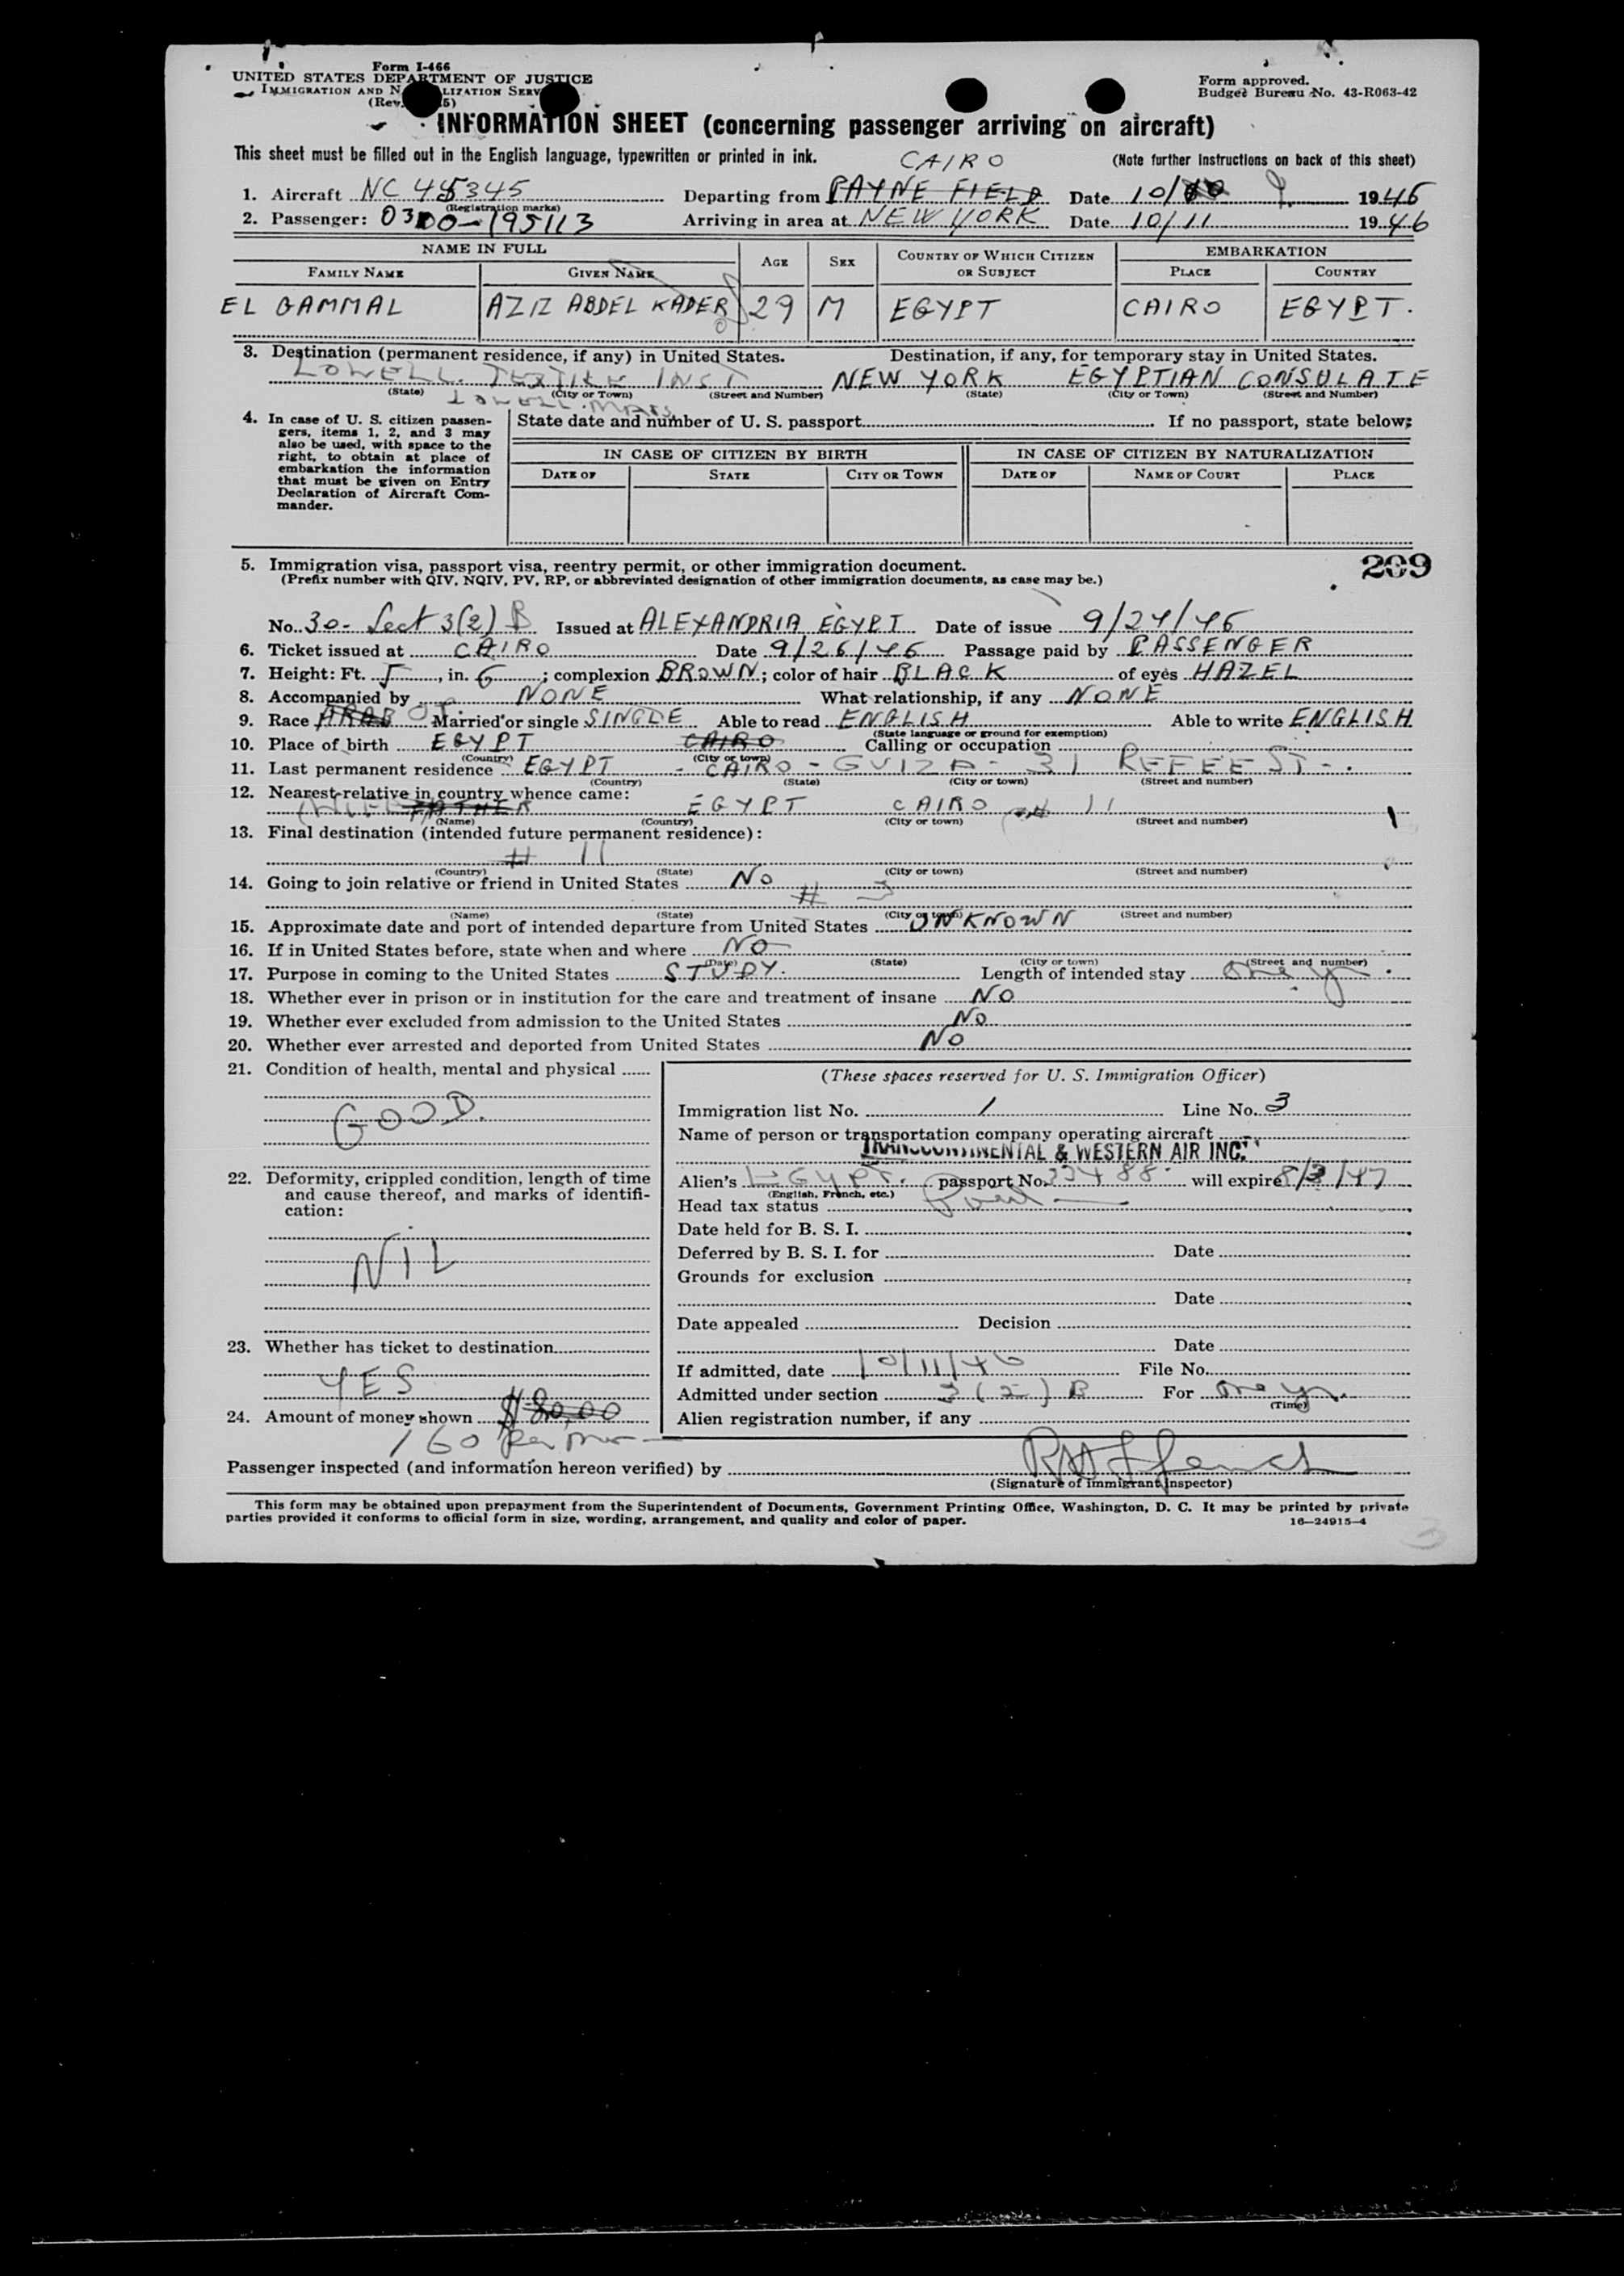 Form I-466
UNITED STATES DEPARTMENT OF JUSTICE
IMMIGRATION AND N LIZATION SERV
(Rev. 5)
Form approved.
Budget Bureau No. 43-R063-42
INFORMATION SHEET (concerning passenger arriving on aircraft)
This sheet must be filled out in the English language, typewritten or printed in ink.
(Note further instructions on back of this sheet)
CAIRO
1. Aircraft NC 45345 Departing from PAYNE FIELD Date 10/ 9. 1946
(Registration marks)
2. Passenger: 0300-195113 Arriving in area at NEW YORK Date 10/11 1946
NAME IN FULL AGE SEX COUNTRY OF WHICH CITIZEN OR SUBJECT EMBARKATION
FAMILY NAME GIVEN NAME PLACE COUNTRY
EL GAMMAL AZIZ ABDEL KADER 29 M EGYPT CAIRO EGYPT.
3. Destination (permanent residence, if any) in United States. Destination, if any, for temporary stay in United States.
LOWELL TEXTILE INST NEW YORK EGYPTIAN CONSULATE
(State) (City or Town) (Street and Number) (State) (City or Town) (Street and Number)
LOWELL. MASS
4. In case of U. S. citizen passengers, items 1, 2, and 3 may also be used, with space to the right, to obtain at place of embarkation the information that must be given on Entry Declaration of Aircraft Commander.
State date and number of U. S. passport If no passport, state below:
IN CASE OF CITIZEN BY BIRTH IN CASE OF CITIZEN BY NATURALIZATION
DATE OF STATE CITY OR TOWN DATE OF NAME OF COURT PLACE
5. Immigration visa, passport visa, reentry permit, or other immigration document.
209
(Prefix number with QIV, NQIV, PV, RP, or abbreviated designation of other immigration documents, as case may be.)
No. 30- Sect 3(2) B Issued at ALEXANDRIA EGYPT Date of issue 9/24/46
6. Ticket issued at CAIRO Date 9/26/46 Passage paid by PASSENGER
7. Height: Ft. 5, in. 6; complexion BROWN; color of hair BLACK of eyes HAZEL
8. Accompanied by NONE What relationship, if any NONE
9. Race ARAB Married or single SINGLE Able to read ENGLISH Able to write ENGLISH
(State language or ground for exemption)
10. Place of birth EGYPT CAIRO Calling or occupation
(Country) (City or town)
11. Last permanent residence EGYPT - CAIRO - GUIZA - 31 REFEE ST-.
(Country) (State) (City or town) (Street and number)
12. Nearest relative in country whence came:
FATHER EGYPT CAIRO # 11
(Name) (Country) (City or town) (Street and number)
13. Final destination (intended future permanent residence):
# 11
(Country) (State) (City or town) (Street and number)
14. Going to join relative or friend in United States No
# 3
(Name) (State) (City or town) (Street and number)
15. Approximate date and port of intended departure from United States UNKNOWN
16. If in United States before, state when and where NO
(Date) (State) (City or town) (Street and number)
17. Purpose in coming to the United States STUDY. Length of intended stay one yr.
18. Whether ever in prison or in institution for the care and treatment of insane NO
19. Whether ever excluded from admission to the United States No
20. Whether ever arrested and deported from United States No
21. Condition of health, mental and physical
GOOD.
22. Deformity, crippled condition, length of time and cause thereof, and marks of identification:
NIL
23. Whether has ticket to destination
YES
24. Amount of money shown $ 80,00
160 per mo
(These spaces reserved for U. S. Immigration Officer)
Immigration list No. 1 Line No. 3
Name of person or transportation company operating aircraft
TRANSCONTINENTAL & WESTERN AIR INC.
Alien's EGYPT. passport No. 33488 will expire 8/3/47
(English, French, etc.)
Head tax status
Date held for B. S. I.
Deferred by B. S. I. for Date
Grounds for exclusion
Date
Date appealed Decision
Date
If admitted, date 10/11/46 File No.
Admitted under section 3(2) B For one yr.
(Time)
Alien registration number, if any
Passenger inspected (and information hereon verified) by
(Signature of Immigrant Inspector)
This form may be obtained upon prepayment from the Superintendent of Documents, Government Printing Office, Washington, D. C. It may be printed by private
parties provided it conforms to official form in size, wording, arrangement, and quality and color of paper. 16—24915-4
3